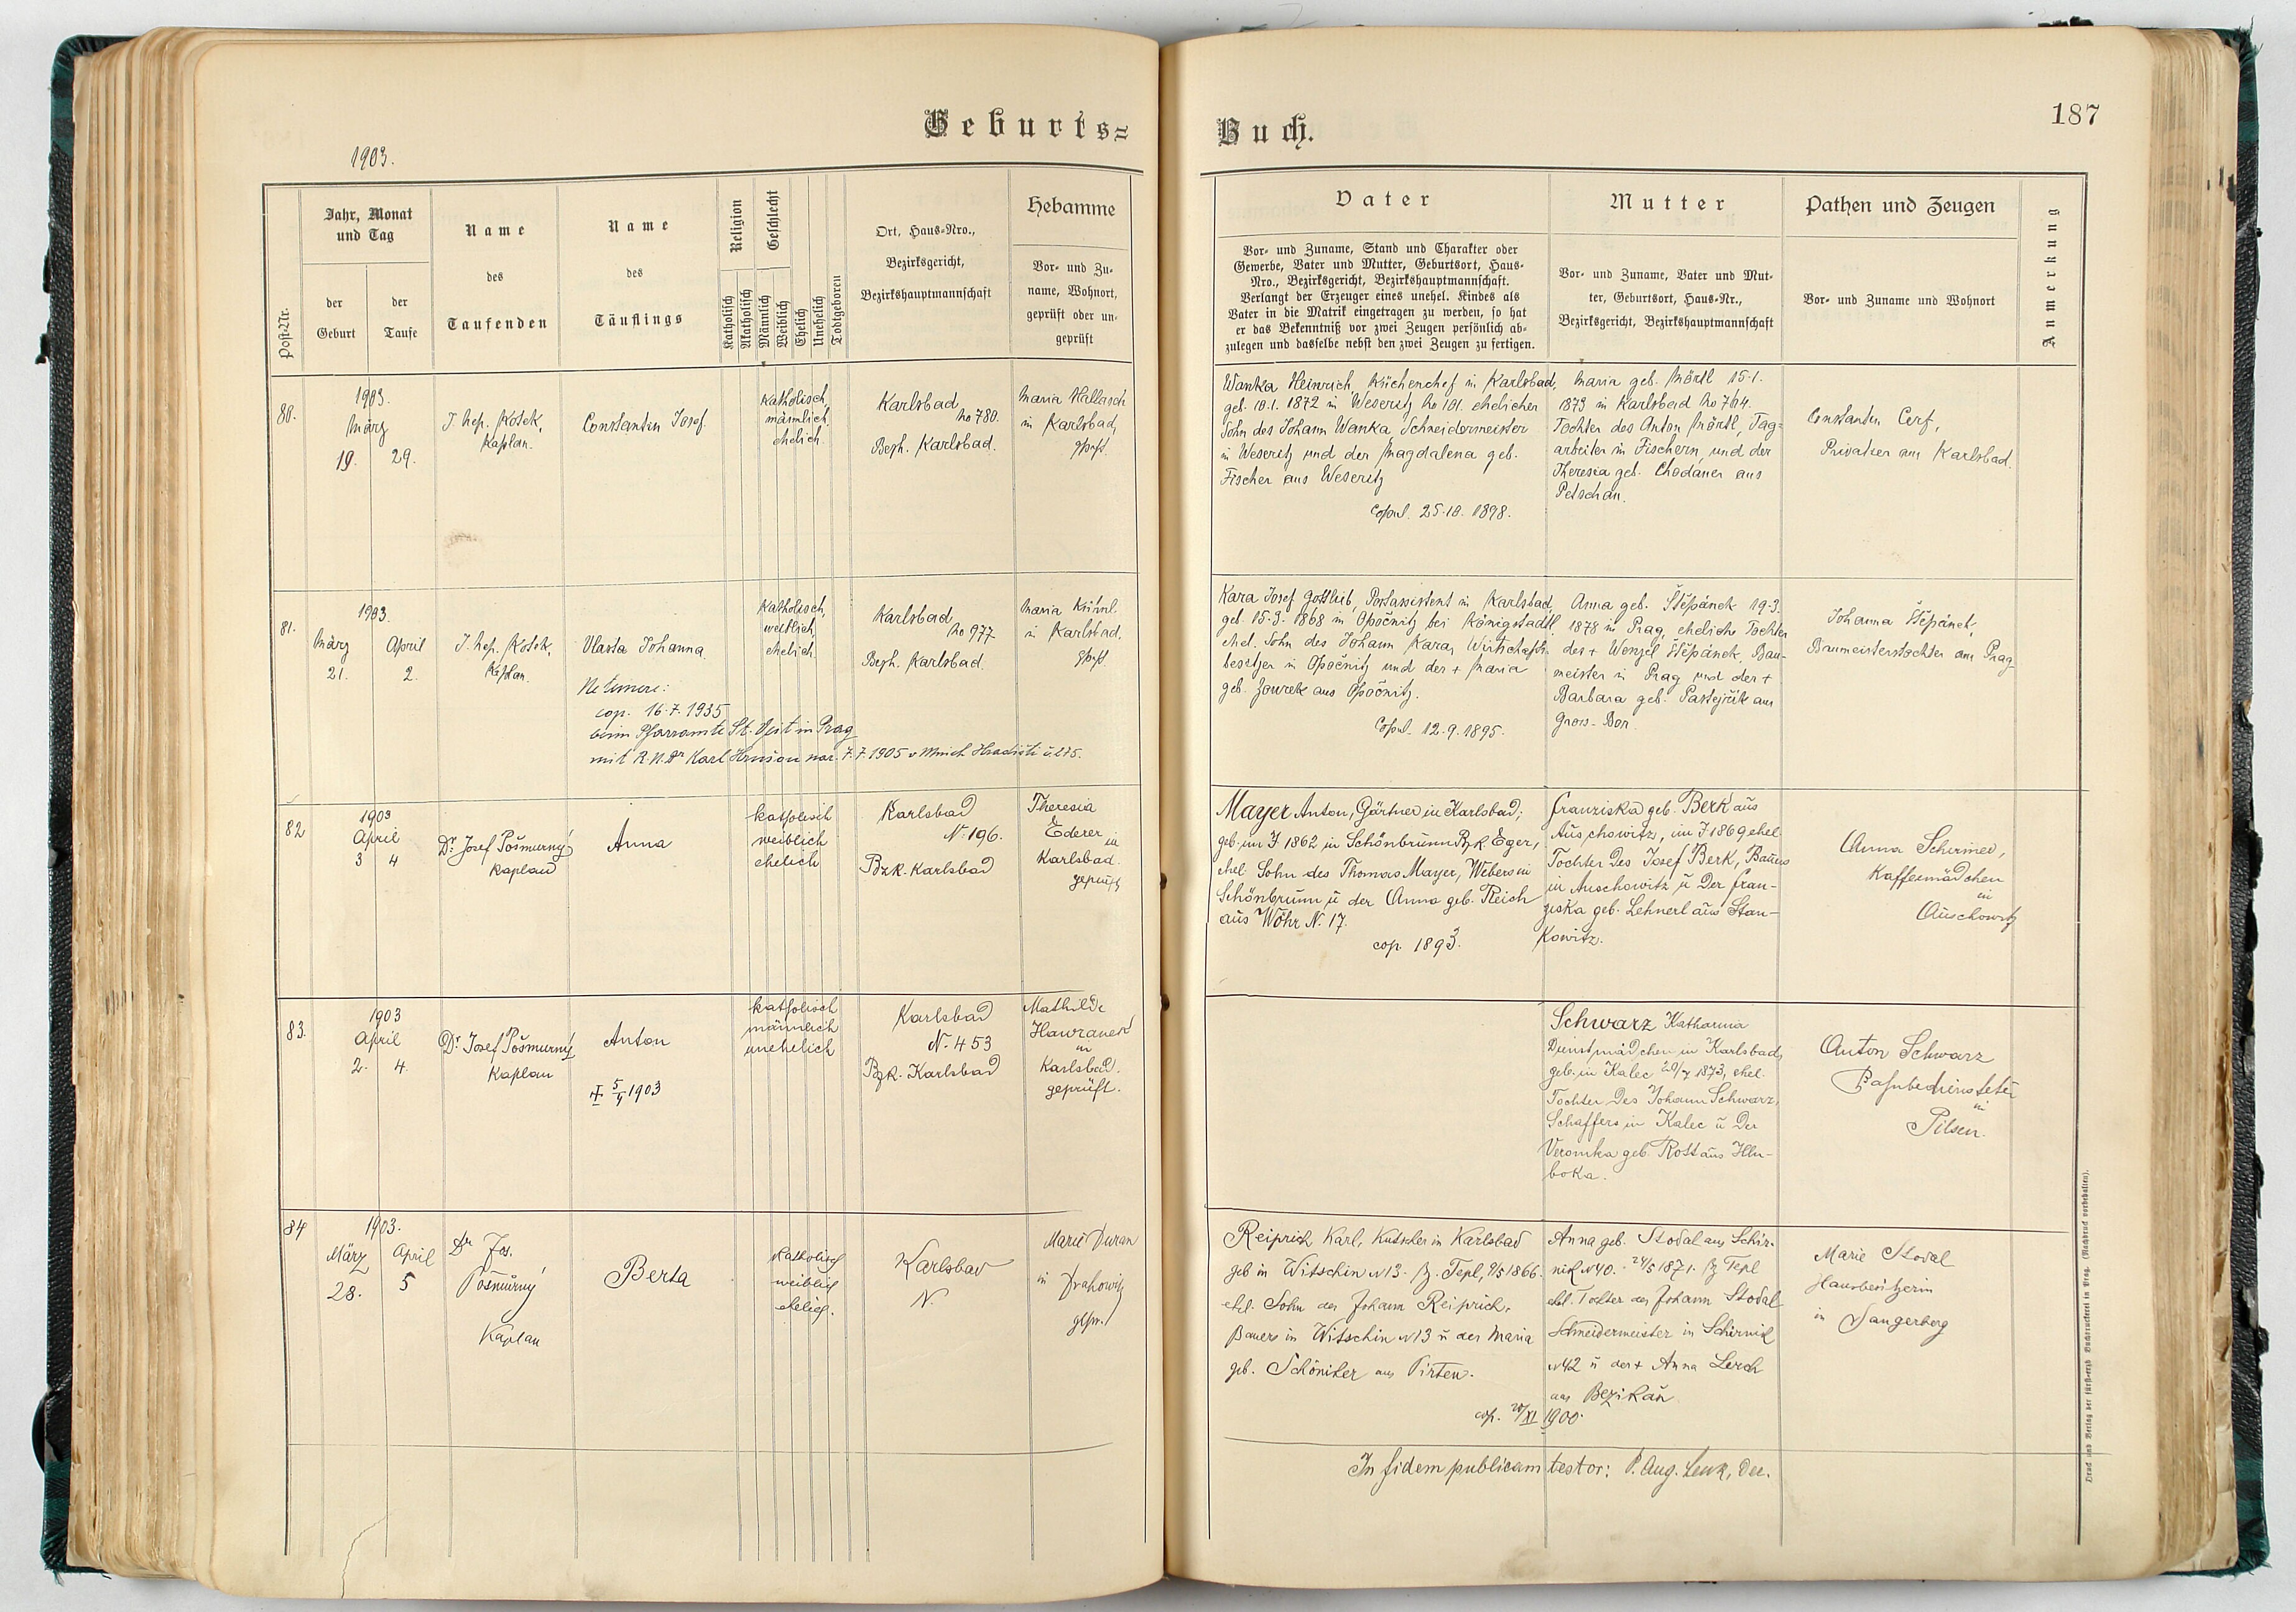 Geburts=
1903.
Post-Nr.
Jahr, Monat
und Tag
der
Geburt
der
Taufe
Name
des
Taufenden
Name
des
Täuflings
Religion
Katholisch
Akatholisch
Geschlecht
Männlich
Weiblich
Ehelich
Unehelich
Todtgeboren
Ort, Haus-Nro.,
Bezirksgericht,
Bezirkshauptmannschaft
Hebamme
Vor- und Zu-
name, Wohnort,
geprüft oder un-
geprüft
80.
1903.
März
19. 29.
J. Nep. Kosek,
Kaplan.
Constantin Josef
Katholisch,
männlich
ehelich.
Karlsbad
No 780.
Bezh. Karlsbad.
Maria Hallasch
in Karlsbad,
81.
1903.
März April
21. 2.
J. Nep. Kosek,
Kaplan.
Vlasta Johanna
Ne temere:
cop. 16.7.1935
beim Pfarramte St. Veit in Prag
mit Karl 7.7.1905 v Mnich. Hradišti č. 275.
Katholisch,
weiblich,
ehelich.
Karlsbad
No 977
Bezh. Karlsbad.
Maria
in Karlsbad,
82
1903
April
3 4
Dr. Josef Pošmurný
Kaplan
Anna
katholisch
weiblich
ehelich
Karlsbad
N. 196.
Bzk. Karlsbad
Theresia
Ederer
in
Karlsbad.
geprüft
83.
1903
April
2. 4.
Dr. Josef Pošmurný
Kaplan
Anton
5/4 1903
katholisch
männlich
unehelich
Karlsbad
N. 453
Bzk. Karlsbad
Mathilde
Hawranek
in
Karlsbad.
geprüft.
84
1903.
März April
28. 5
Dr. Jos.
Pošmurný
Kaplan
Berta
katholisch
weiblich
ehelich.
Karlsbad
N.
Marie Duran
in Drahowitz
gepr.
Buch.
187
Vater
Vor- und Zuname, Stand und Charakter oder
Gewerbe, Vater und Mutter, Geburtsort, Haus-
Nro., Bezirksgericht, Bezirkshauptmannschaft.
Verlangt der Erzeuger eines unehel. Kindes als
Vater in die Matrik eingetragen zu werden, so hat
er das Bekenntniß vor zwei Zeugen persönlich ab-
zulegen und dasselbe nebst den zwei Zeugen zu fertigen.
Mutter
Vor- und Zuname, Vater und Mut-
ter, Geburtsort, Haus-Nr.,
Bezirksgericht, Bezirkshauptmannschaft
Pathen und Zeugen
Vor- und Zuname und Wohnort
Anmerkung
Wanka Heinrich, Küchenchef in Karlsbad,
geb. 10.1. 1872 in Weseritz No 101. ehelicher
Sohn des Johann Wanka Schneidermeister
in Weseritz und der Magdalena geb.
Fischer aus Weseritz
Copul. 25.10. 1898.
Maria geb. Mörtl 15.1.
1873 in Karlsbad No 764.
Tochter des Anton Mörtl, Tag=
arbeiter in Fischern, und der
Theresia geb. Chodauer aus
Petschau.
Constantin Cerf,
Privatier aus Karlsbad.
Kara Josef Gottlieb, Postassistent in Karlsbad,
geb. 15.3. 1868 in Opočnitz bei Königstadtl,
ehel. Sohn des Johann Kara, Wirtschafts-
besitzer in Opočnitz und der + Maria
geb. aus Opočnitz.
Copul. 12.9.1895.
Anna geb. Štěpánek 19.3.
1878 in Prag, eheliche Tochter
des + Wenzel Štěpánek, Bau-
meister in Prag und der +
Barbara geb. aus
Gross-Bor
Johanna Štěpánek,
Baumeisterstochter aus Prag
Mayer Anton, Gärtner in Karlsbad;
geb. im J 1862 in Schönbrunn Bzk Eger,
ehel. Sohn des Thomas Mayer, Webers in
Schönbrunn u der Anna geb. Reich
aus Wöhr N. 17.
cop. 1893.
Franziska geb. Berk aus
Auschowitz, im J 1869 ehel.
Tochter des Josef Berk, Bauers
in Auschowitz u der Fran-
ziska geb. Lehnerl aus Stan-
kowitz.
Anna Schirmer,
Kaffeemädchen
in
Auschowitz
Schwarz Katharina
Dienstmädchen in Karlsbad,
geb. in Kalec 20/4 1873, ehel.
Tochter des Johann Schwarz,
Schaffers in Kalec u der
Veronika geb. Rost aus Hlu-
boka.
Anton Schwarz
Bahnbediensteter
in
Pilsen.
Reiprich Karl, Kutscher in Karlsbad
geb in Witschin N 13. Bz. Tepl, 9/5 1866.
ehel. Sohn des Johann Reiprich,
Bauers in Witschin N 13 u der Maria
geb. Schöniker aus Pirten.
cop. 20/XI 1900.
Anna geb. Stodal aus Schir-
nik N 40. 24/5 1871. Bz Tepl
ehel. Tochter des Johann Stodal
Schneidermeister in Schirnik
N 42 u der + Anna Lerch
aus
Marie Stodal
Hausbesitzerin
in Sangerberg
In fidem publicam testor: P. Aug. Lenk, Dec.
Druck und Verlag der fürst-erzb. Buchdruckerei in Prag. (Nachdruck vorbehalten).